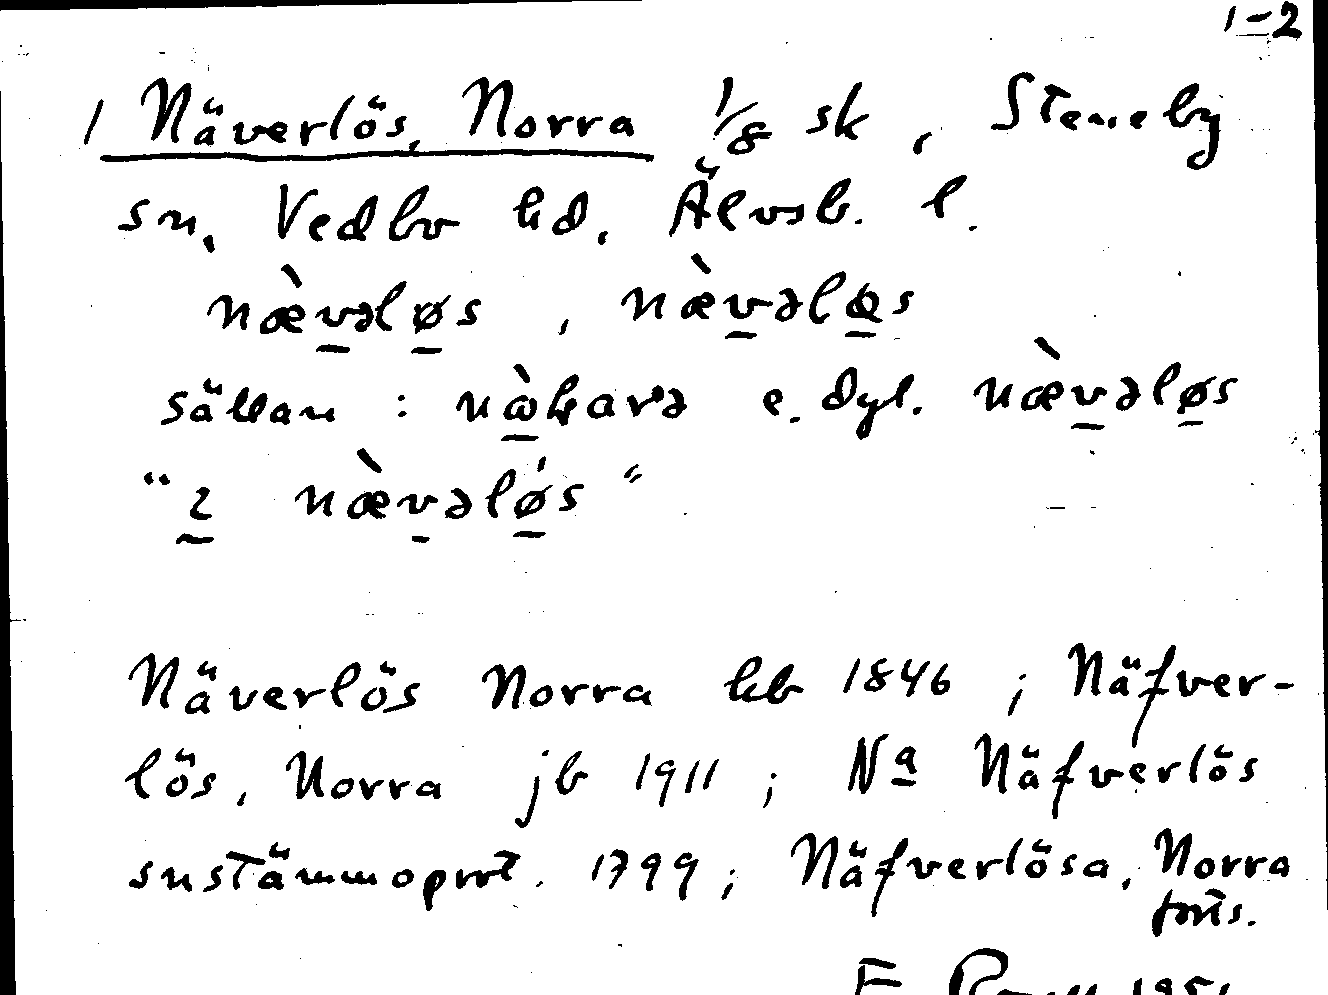 1-2
1 Näverlös, Norra 1/8 sk, Steneby
sn, Vedbo hd, Älvsb. l.
næ̀vəløs, næ̀vəlœs
sällan: nɷ̀ƕarə e. dyl. næ̀vəløs
"ɩ næ̀vəlǿs"
Näverlös Norra hb 1846; Näfver-
lös, Norra jb 1911; Na Näfverlös
snstämmoprot. 1799; Näfverlösa, Norra
forts.